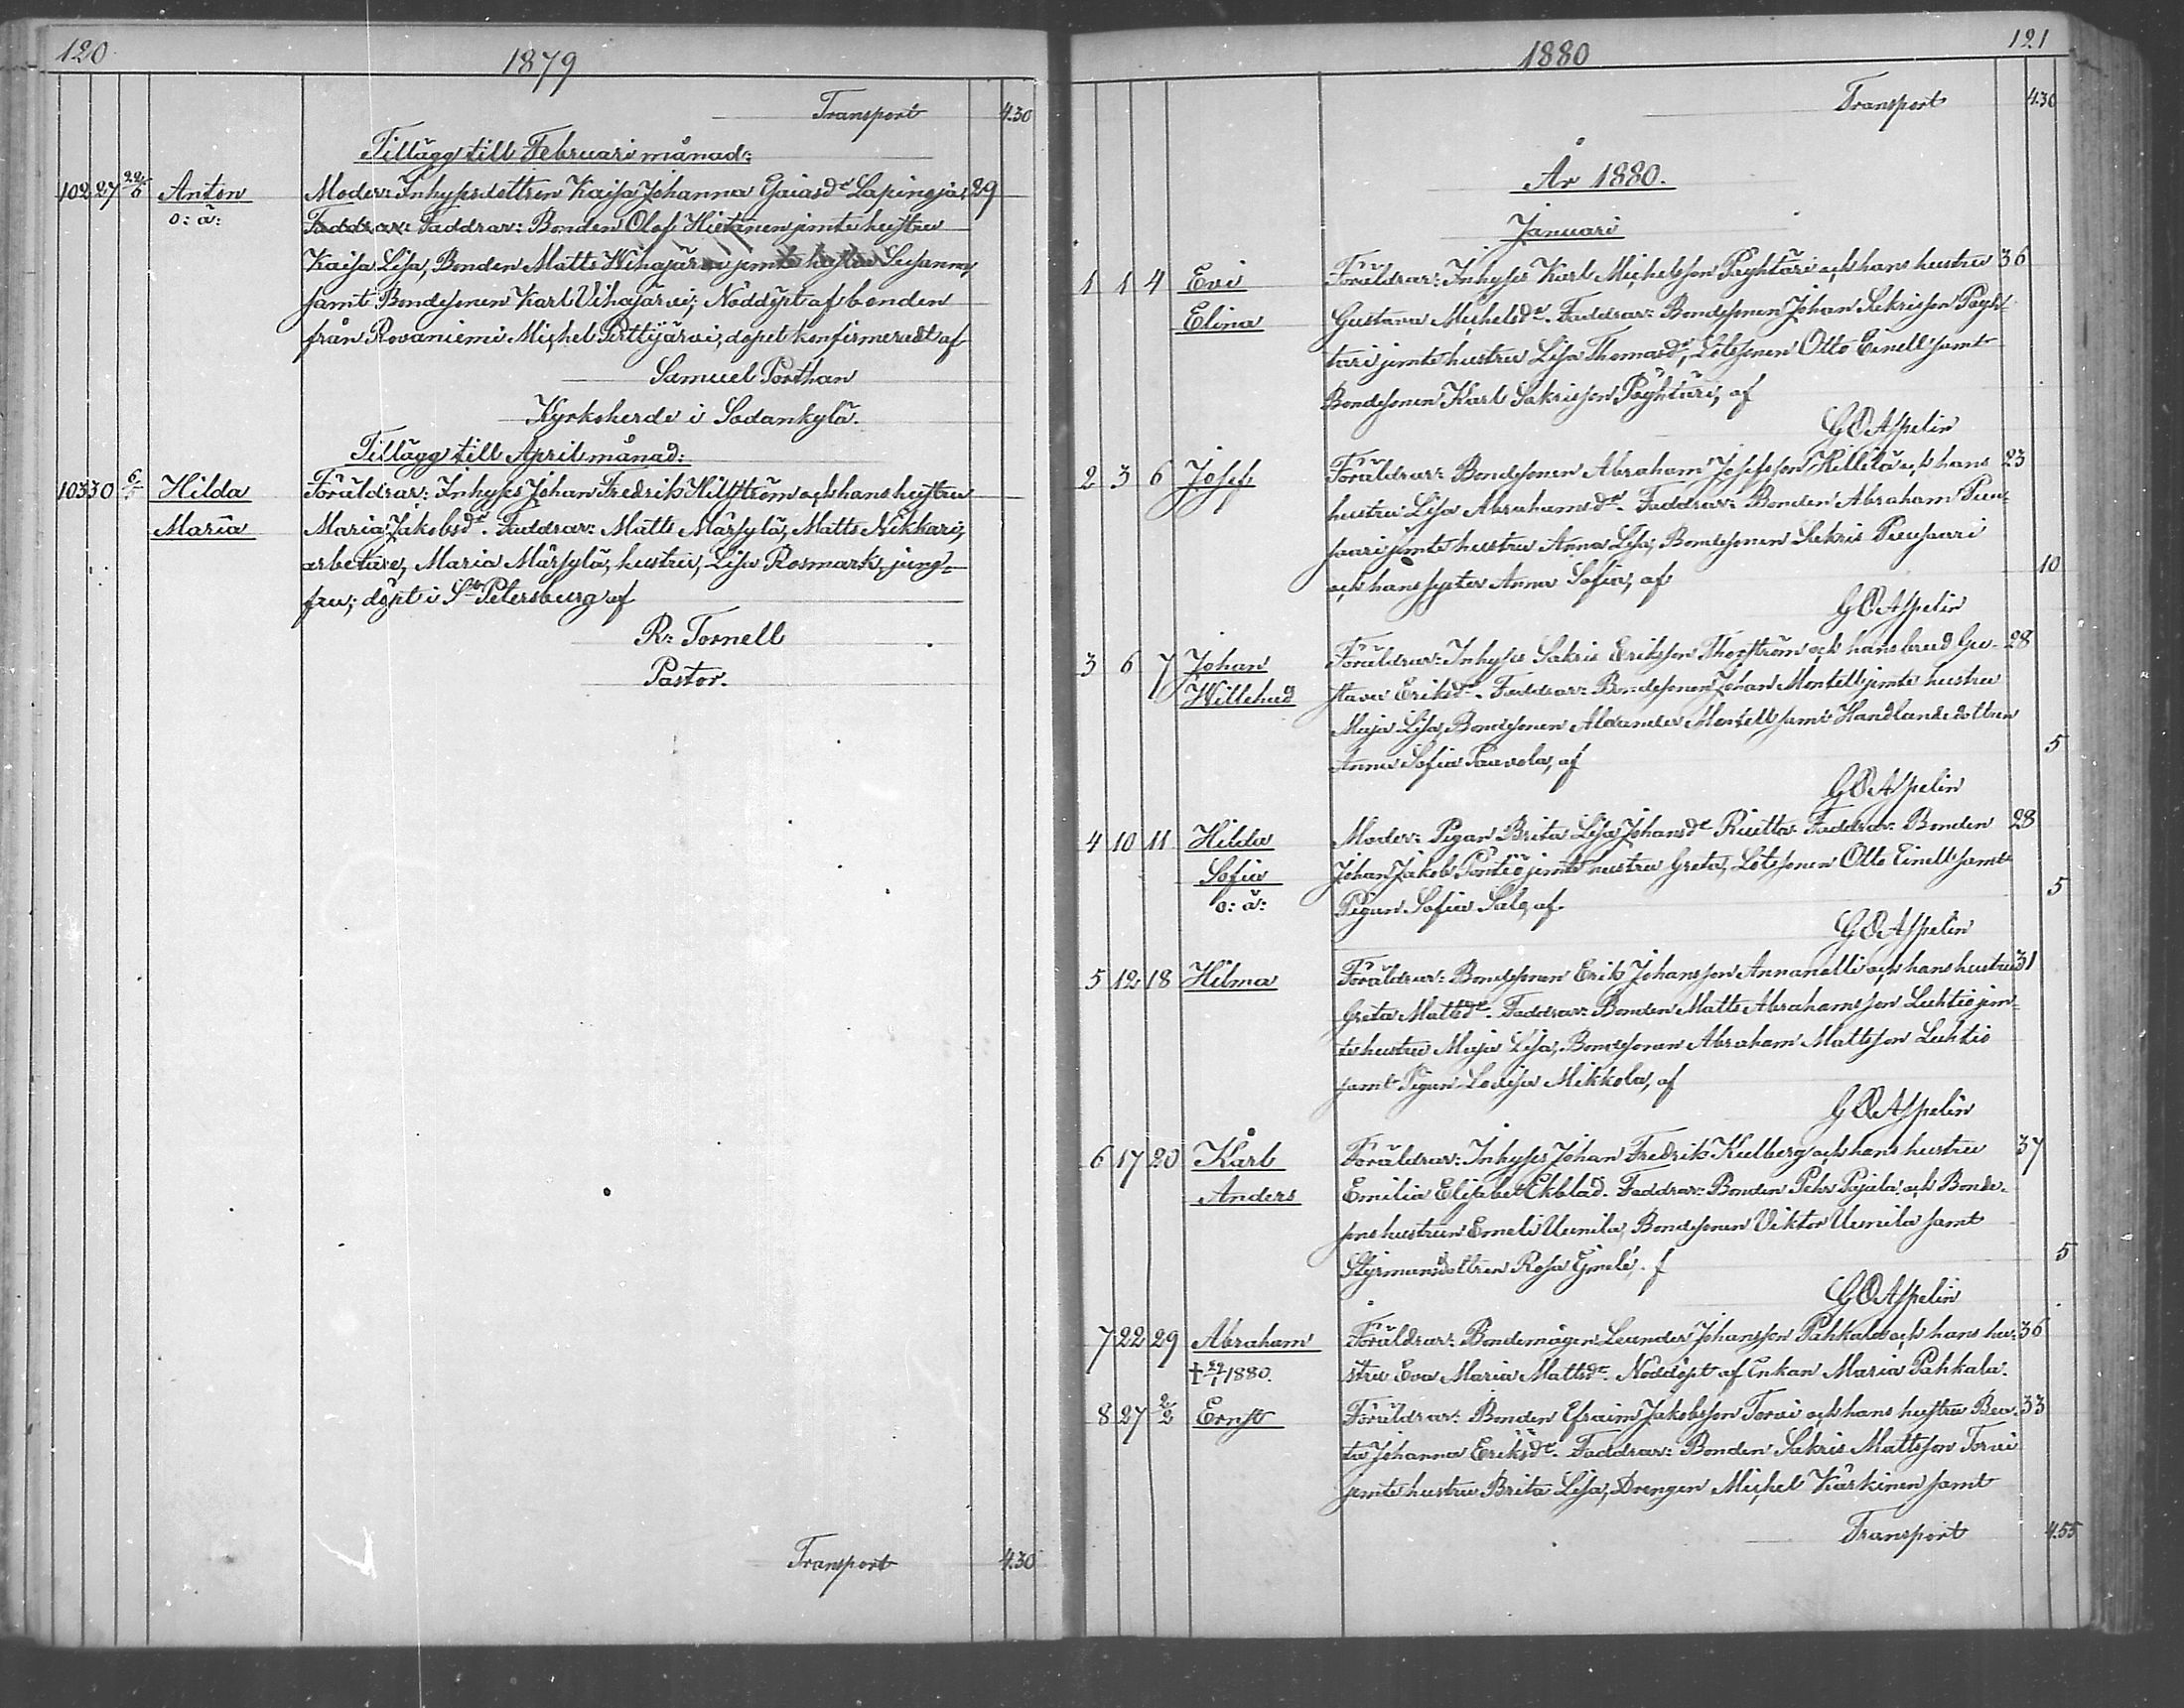 120
1879
Transport 4.30
Tillägg till Februari månad:
102 27 22/6 Anton Moder: Inhysesdottren Kaisa Johanna Esaiasdr Lapinoja. 29
o: ä: Faddrar: Faddrar: Bonden Olof Hietanen jemte hustru
Kaisa Lisa, Bonden Matts Wihajärvi jemte hustru Susanna,
samt Bondesonen Karl Vihajärvi; Nöddöpt af bonden
från Rovaniemi Michel Perttijärvi, dopet konfirmeradt af
Samuel Porthan
Kyrkoherde i Sodankylä.
Tillägg till April månad:
103 30 6/5 Hilda Föräldrar: Inhyses Johan Fredrik Hillström och hans hustru
Maria Maria Jakobsdr. Faddrar: Matts Märsylä, Matts Nikkari,
arbetare, Maria Märsylä, hustru, Lisa Rosmark, jung-
fru; döpt i S:t Petersburg af
R. Tornell
Pastor.
Transport 4.30
121
1880
Transport 4.30
År 1880.
Januari
1 1 4 Evi Föräldrar: Inhyses Karl Michelsson Pöyhtäri och hans hustru 36
Elina Gustava Michelsdr. Faddrar: Bondesonen Johan Sakrisson Pöyh-
täri jemte hustru Lisa Thomasdr, Lotssonen Otto Einell samt
Bondesonen Karl Sakrisson Pöyhtäri, af
G O Aspelin
2 3 6 Josef Föräldrar: Bondesonen Abraham Josefsson Hillilä och hans 23
hustru Lisa Abrahamsdr. Faddrar: Bonden Abraham Puu-
saari jemte hustru Anna Lisa, Bondesonen Sakris Puusaari
och hans syster Anna Sofia, af 10
G O Aspelin
3 6 7 Johan Föräldrar: Inhyses Sakris Eriksson Thorström och hans brud Gu- 28
Willehad stava Eriksdr. Faddrar: Bondesonen Johan Montell jemte hustru
Maja Lisa, Bondesonen Alexander Montell samt Handlandedottren
Anna Sofia Paavola, af 5
G O Aspelin
4 10 11 Hilda Moder: Pigan Brita Lisa Johansdr Ruitta. Faddrar: Bonden 28
Sofia Johan Jakob Pöntiö jemte hustru Greta, Lotssonen Otto Einell samt
o: ä: Pigan Sofia Salo, af 5
G O Aspelin
5 12 18 Hilma Föräldrar: Bondesonen Erik Johansson Annanolli och hans hustru 31
Greta Mattsdr. Faddrar: Bonden Matts Abrahamsson Luhtio jem-
te hustru Maja Lisa, Bondesonen Abraham Mattsson Luhtio
samt Pigan Lovisa Mikkola, af
G O Aspelin
6 17 20 Karl Föräldrar: Inhyses Johan Fredrik Kulberg och hans hustru 37
Anders Emilia Elisabet Ekblad. Faddrar: Bonden Pehr Pajala och Bonde-
sons hustrun Emeli Uunila, Bondesonen Viktor Uunila samt
Styrmansdottren Rosa . f 5
G O Aspelin
7 22 29 Abraham Föräldrar: Bondemågen Leander Johansson Pahkala och hans hu- 36
† 29/1 1880. stru Eva Maria Mattsdr. Nöddöpt af Enkan Maria Pahkala.
8 27 2/2 Ernst Föräldrar: Bonden Efraim Jakobsson Torvi och hans hustru Bea- 33
ta Johanna Eriksdr. Faddrar: Bonden Sakris Mattsson Torvi
jemte hustru Brita Lisa, Drengen Michel Kärkinen samt
Transport 4.55